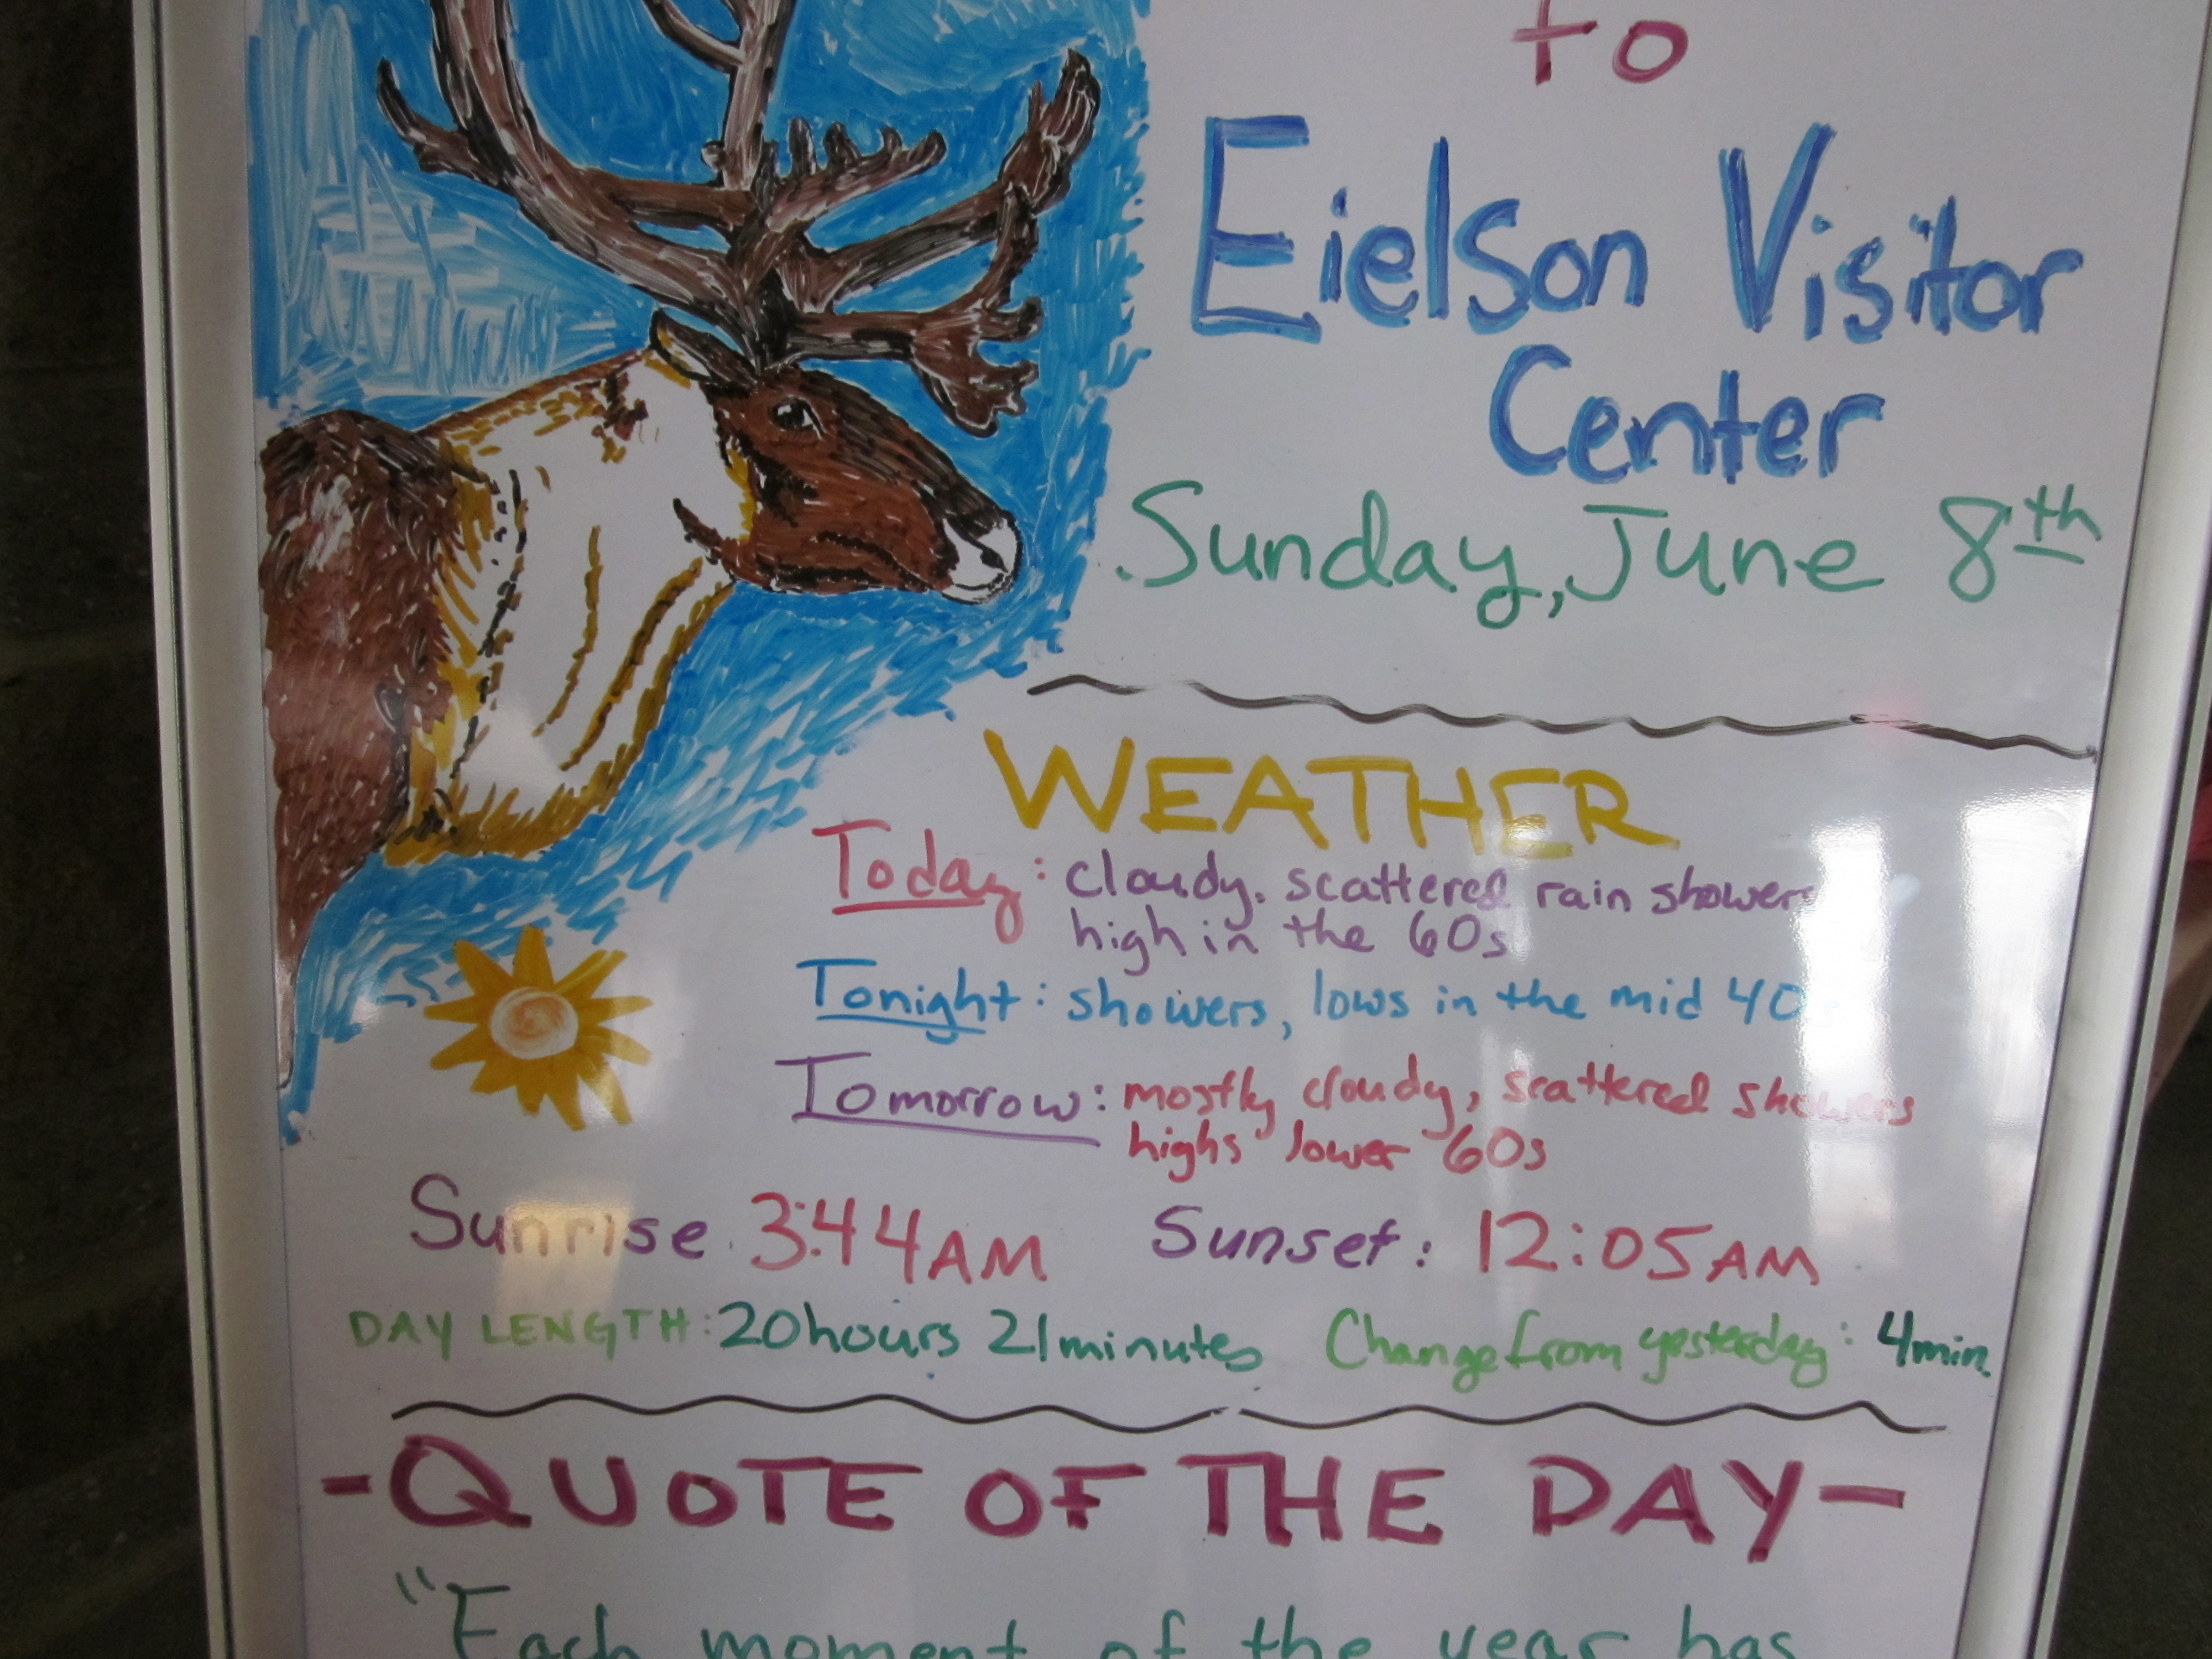 to
Eielson Visitor
Center
Sunday, June 8th
WEATHER
Today: cloudy, scattered rain showers
high in the 60s
Tonight: showers, lows in the mid 40s
Tomorrow: mostly cloudy, scattered showers
highs lower 60s
Sunrise 3:44AM Sunset: 12:05AM
DAY LENGTH: 20hours 21minutes Change from yesterday: 4min.
-QUOTE OF THE DAY-
"Each moment of the year has